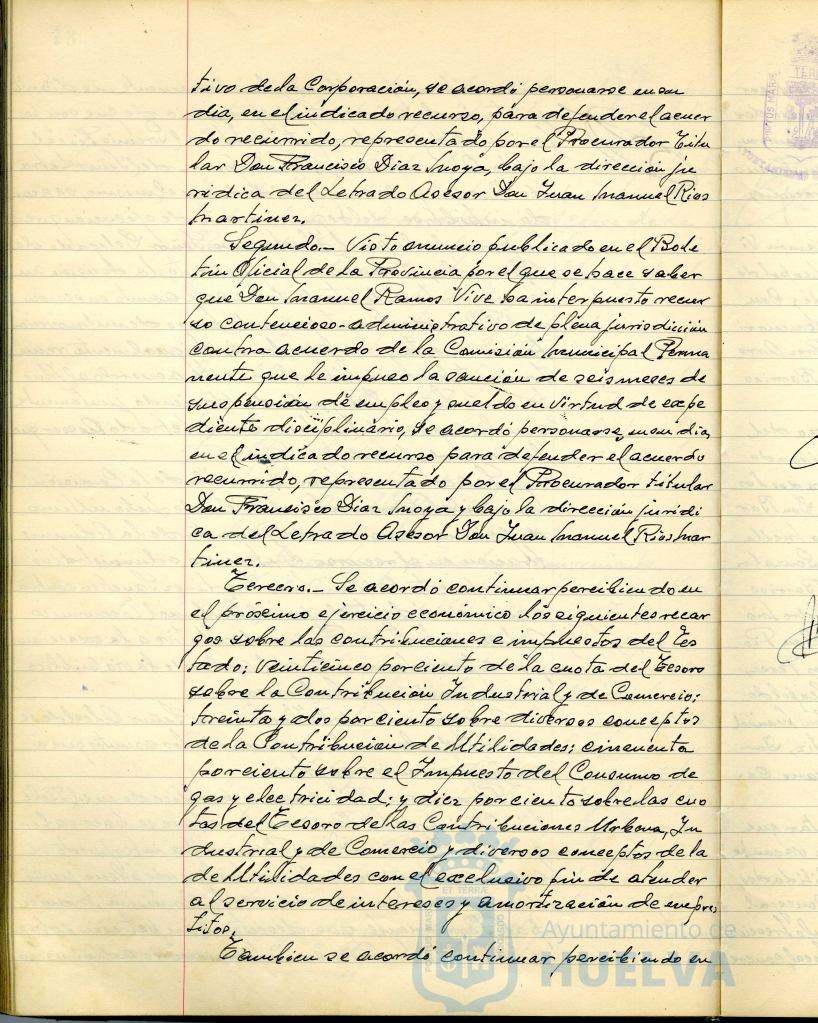 tivo de la Corporación, se acordó personarse en su
dia, en el indicado recurso, para defender el acuer
do recurrido, representado por el Procurador Titu
lar Don Francisco Diaz Moya, bajo la dirección ju
ridica del Letrado Asesor Don Juan Manuel Rios
Martinez.
Segundo.- Visto anuncio publicado en el Bole
tin Oficial de la Provincia por el que se hace saber
que Don Manuel Ramos Vive ha interpuesto recur
so contencioso-administrativo de plena jurisdicción
contra acuerdo de la Comisión Municipal Perma
nente que le impuso la sanción de seis meses de
suspensión de empleo y sueldo en virtud de expe
diente disciplinario, se acordó personarse, en su dia,
en el indicado recurso para defender el acuerdo
recurrido, representado por el Procurador titular
Don Francisco Diaz Moya y bajo la dirección juridi
ca del Letrado Asesor Don Juan Manuel Rios Mar
tinez.
Tercero.- Se acordó continuar percibiendo en
el próximo ejercicio económico los siguientes recar
gos sobre las contribuciones e impuestos del Es
tado: veinticinco por ciento de la cuota del Tesoro
sobre la Contribución Industrial y de Comercio;
treinta y dos por ciento sobre diversos conceptos
de la Contribución de Utilidades; cincuenta
por ciento sobre el Impuesto del Consumo de
gas y electricidad; y diez por ciento sobre las cuo
tas del Tesoro de las Contribuciones Urbana, In
dustrial y de Comercio y diversos conceptos de la
de Utilidades con el exclusivo fin de atender
al servicio de intereses y amortización de emprés
titos.
Tambien se acordó continuar percibiendo en
Ayuntamiento de
HUELVA